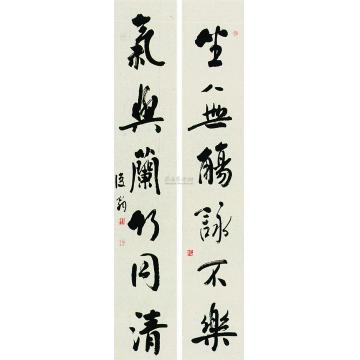 坐無觴詠不樂
氣與蘭竹同清